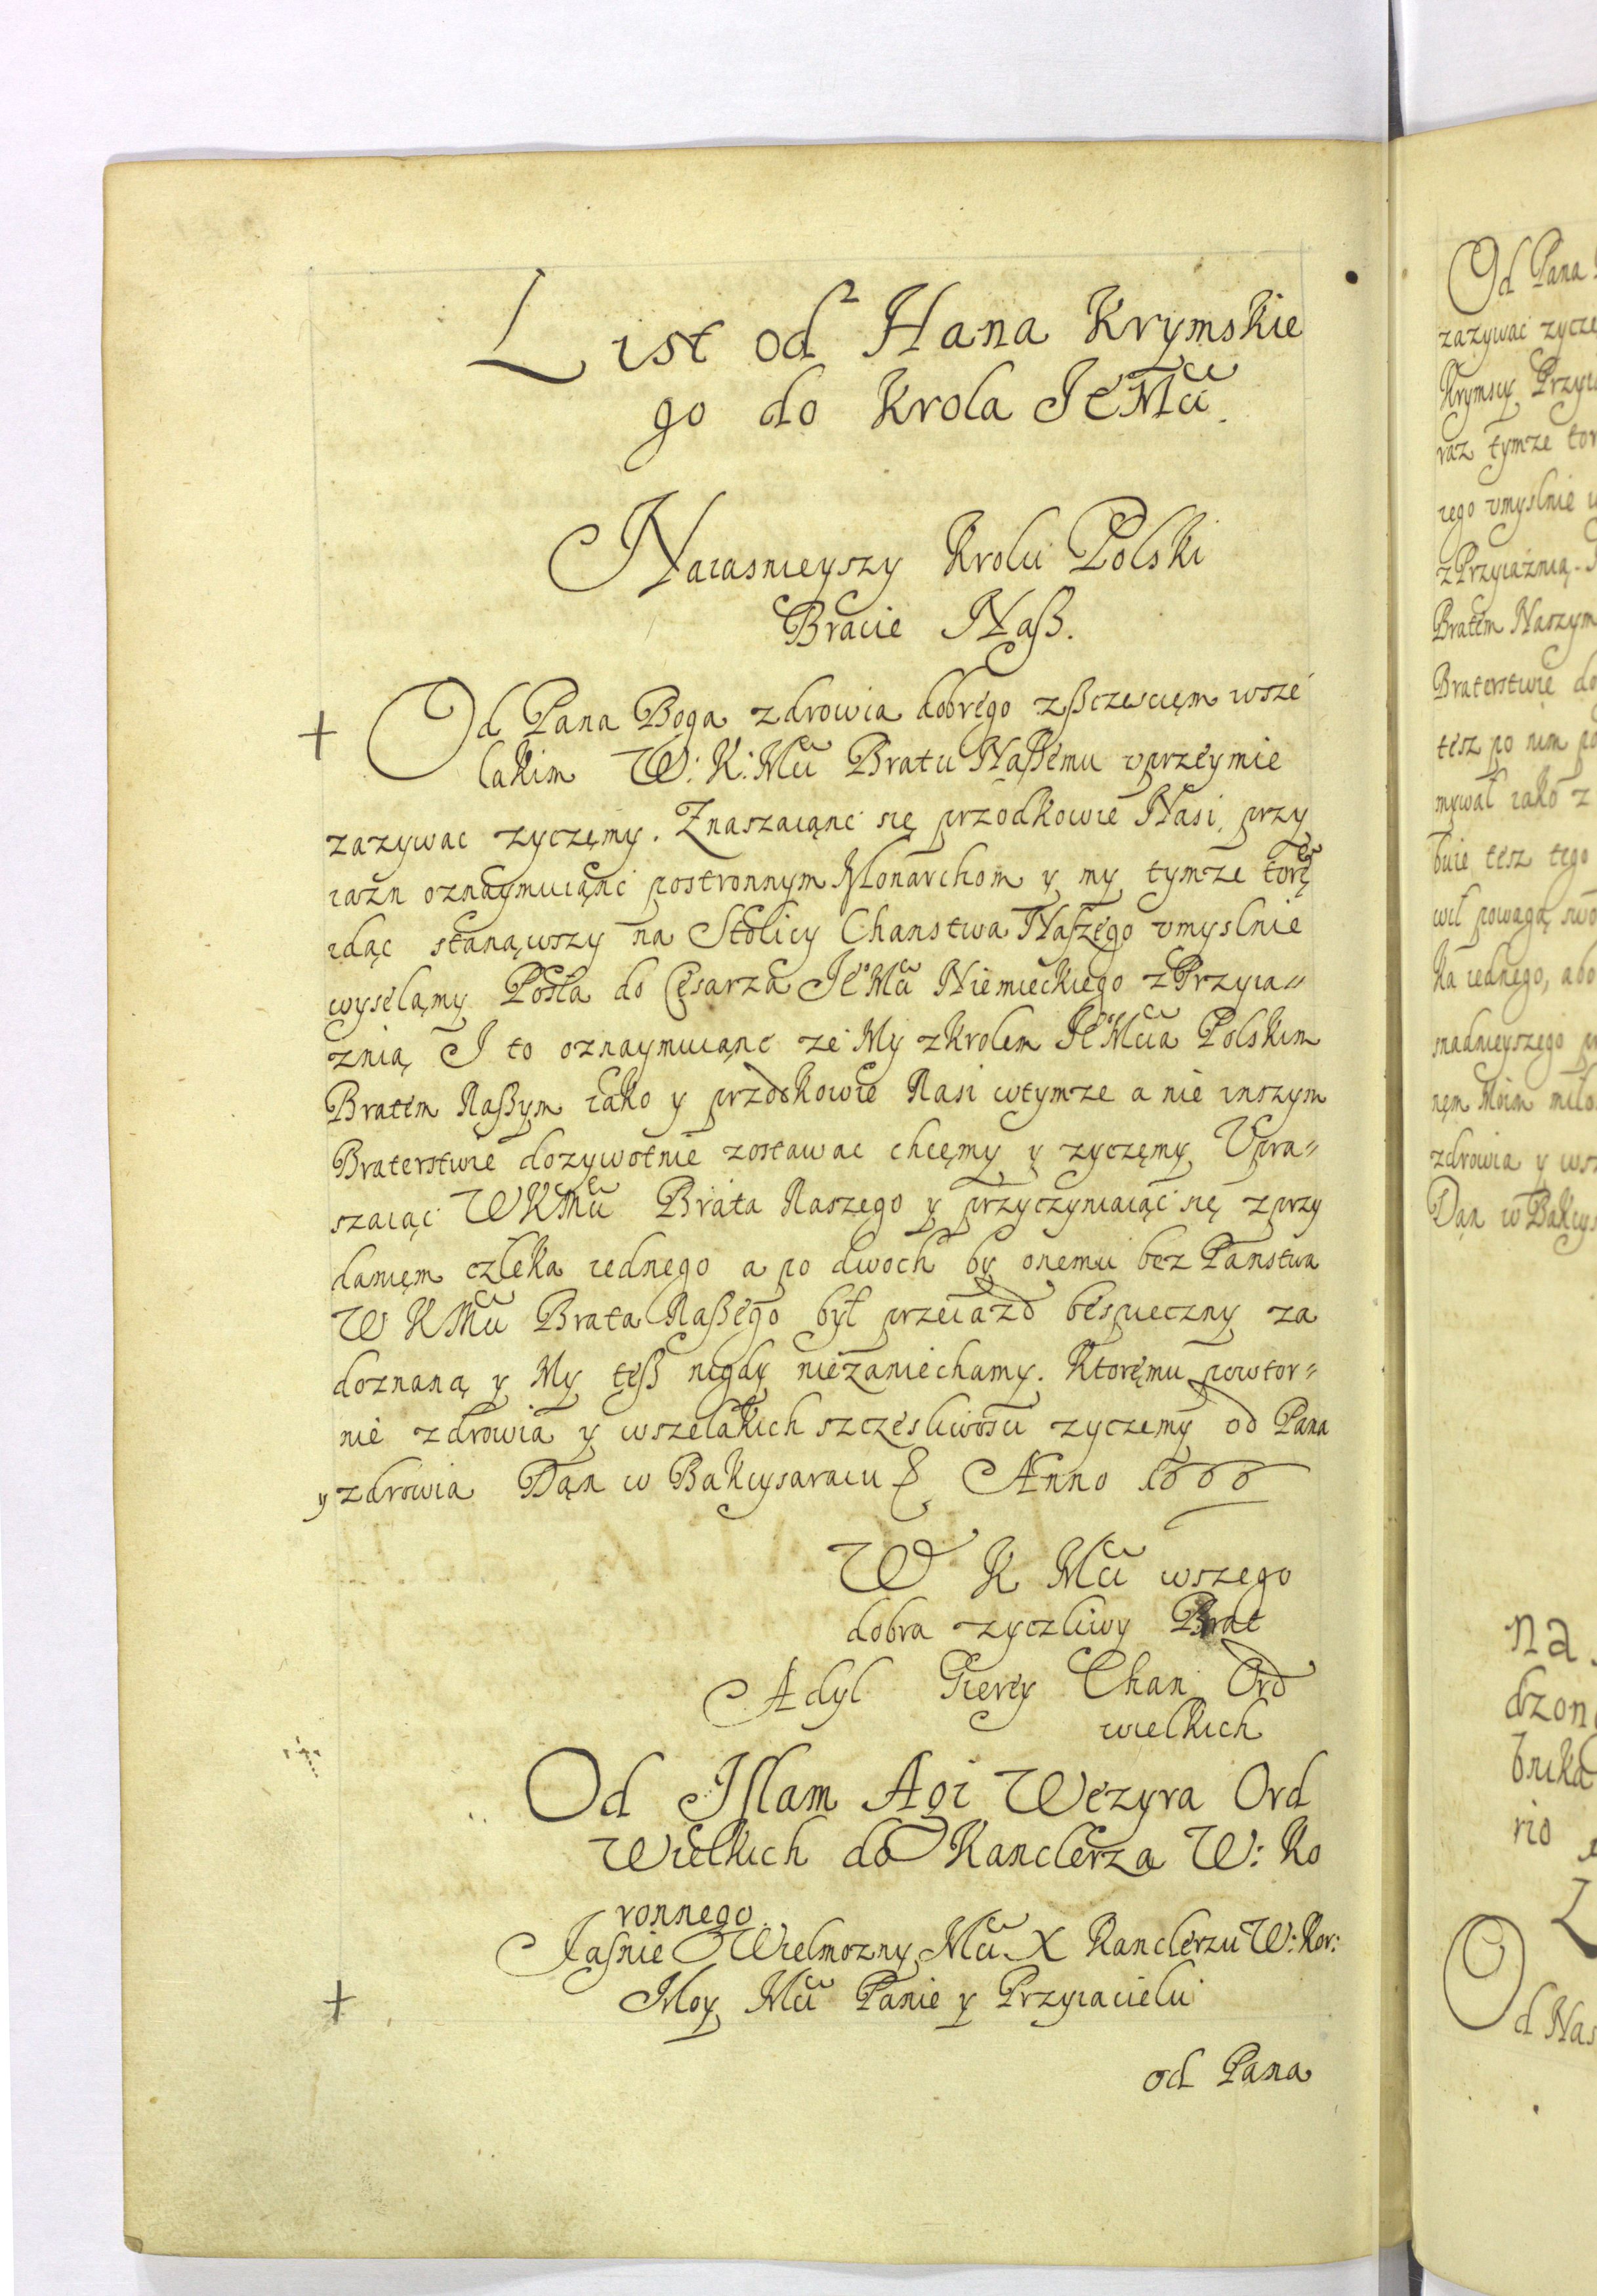 List od Hana Krymskie
go do Krola JeMci.
Naiasnieyszy Krolu Polski
Bracie Naß.
Od Pana Boga zdrowia dobrego zßczesciem wsze
lakim W: K: Mci Bratu Naßemu uprzeymie
zazywac zyczęmy. Znaszaiąnc się przodkowie Nasi, przy
iazn oznaymuiąnc postronnym Monarchom y my tymze torę
idąc stanąwszy na Stolicy Chanstwa Naszego umyslnie
wysełąmy Posła do Cęsarza JeMci Niemieckiego z Przyia„
znią I to oznaymuiąnc ze My z Krolem JeMcia Polskim
Bratem Naßym iako y przodkowie Nasi wtymze a nie inszym
Braterstwie dozywotnie zostawac chcęmy y zyczęmy Upra„
szaiąc WKMci Brata Naszego y przyczyniaiąc się z przy
daniem człeka iednego a po dwoch by onemu bez Panstwa
W KMci Brata Naßego był przeiazd bespieczny za
doznaną y My tęß nigdy niezaniechamy. Ktoręmu powtor„
nie zdrowia y wszelakich szczesliwosci zyczemy od Pana
y zdrowia Dąn w Bakcysaraiu Anno 1666
W K Mci wszego
dobra zyczliwy Brat
Adyl Gierey Chan Ord
wielkich
Od Islam Agi Wezyra Ord
Wielkich do Kanclerza W: Ko
ronnego
Jasnie Wielmozny Mci X Kanclerzu W: Kor:
Moy Mci Panie y Przyiacielu
od Pana
Od Pana
zazywac zycze
Krymscy Przyia
raz tymze tor
iego umyslnie w
z Przyiaznią
Bratem Naszym
Braterstwie do
tesz po nim po
mywał iako z
buie tesz tego
wił powagą swo
ka iednego, abo
snadnieyszego
nęm Moim miło
zdrowia y wsz
Dąn w Bakcys
na
dzon
rio
Od Nas